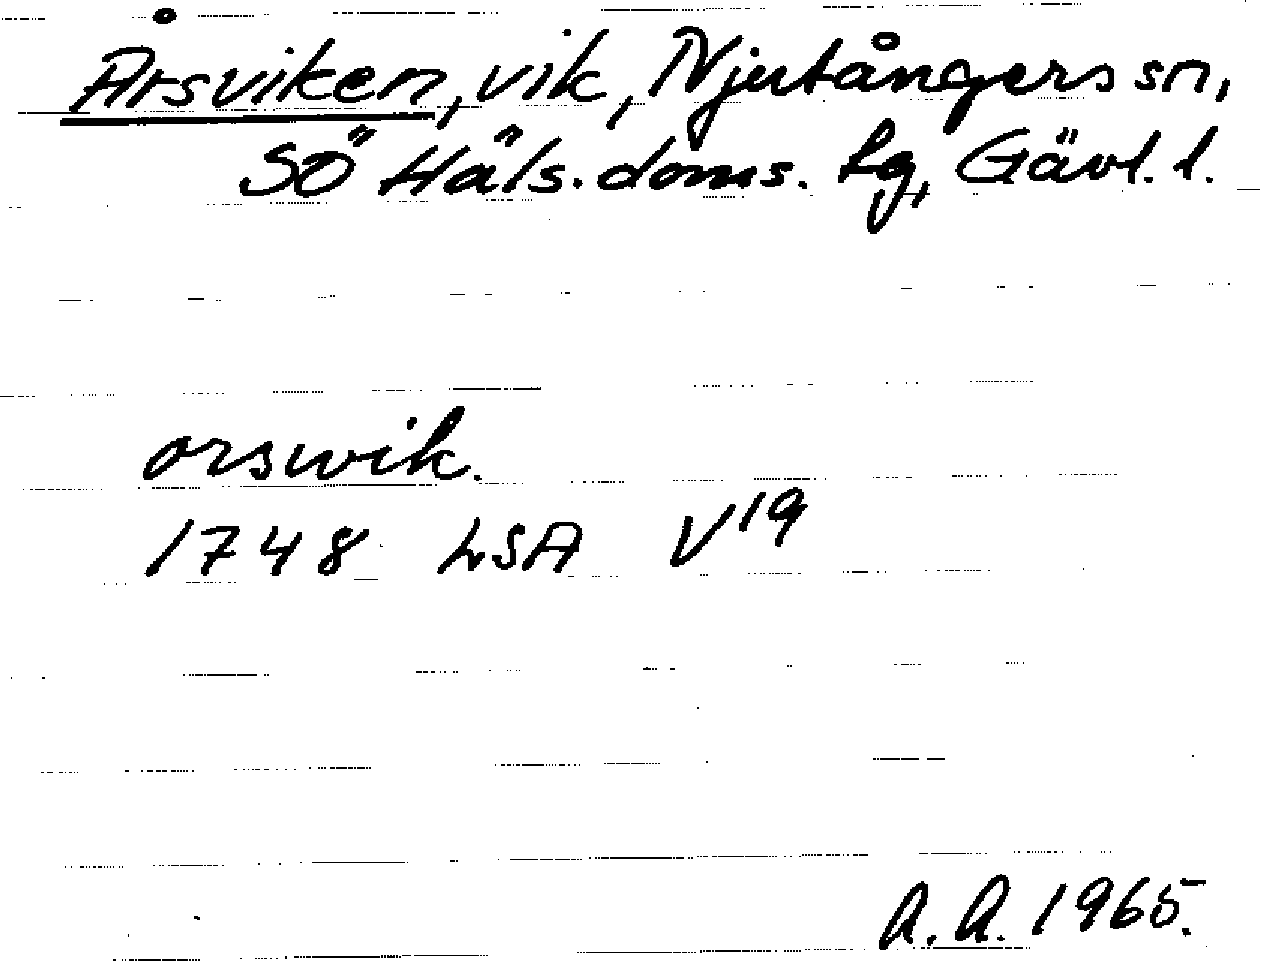 Årsviken, vik, Njutångers sn,
SÖ Häls. doms. lg, Gävl. l.
orswik.
1748 LSA V19
A. A. 1965.